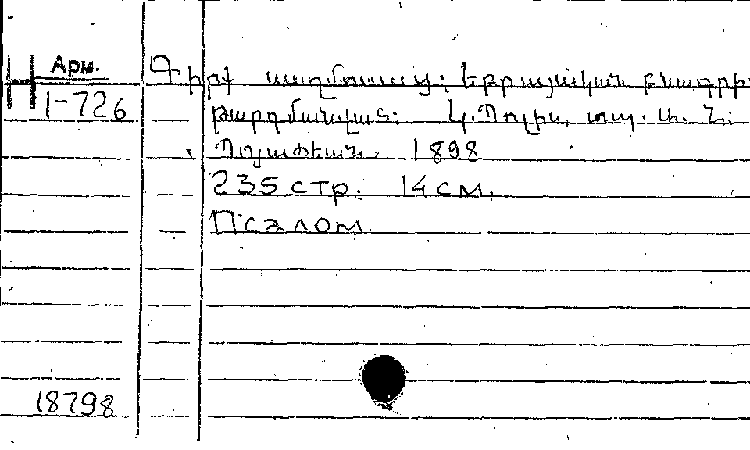 Арм.
1-726
Գիրք սաղմոսաց: Եբրայական բնագրի
թարգմանված: Կ.Պոլիս, տպ. Ա. Ն.
Պոյաճեան. 1898
235 стр. 14 см.
Псалом
18798